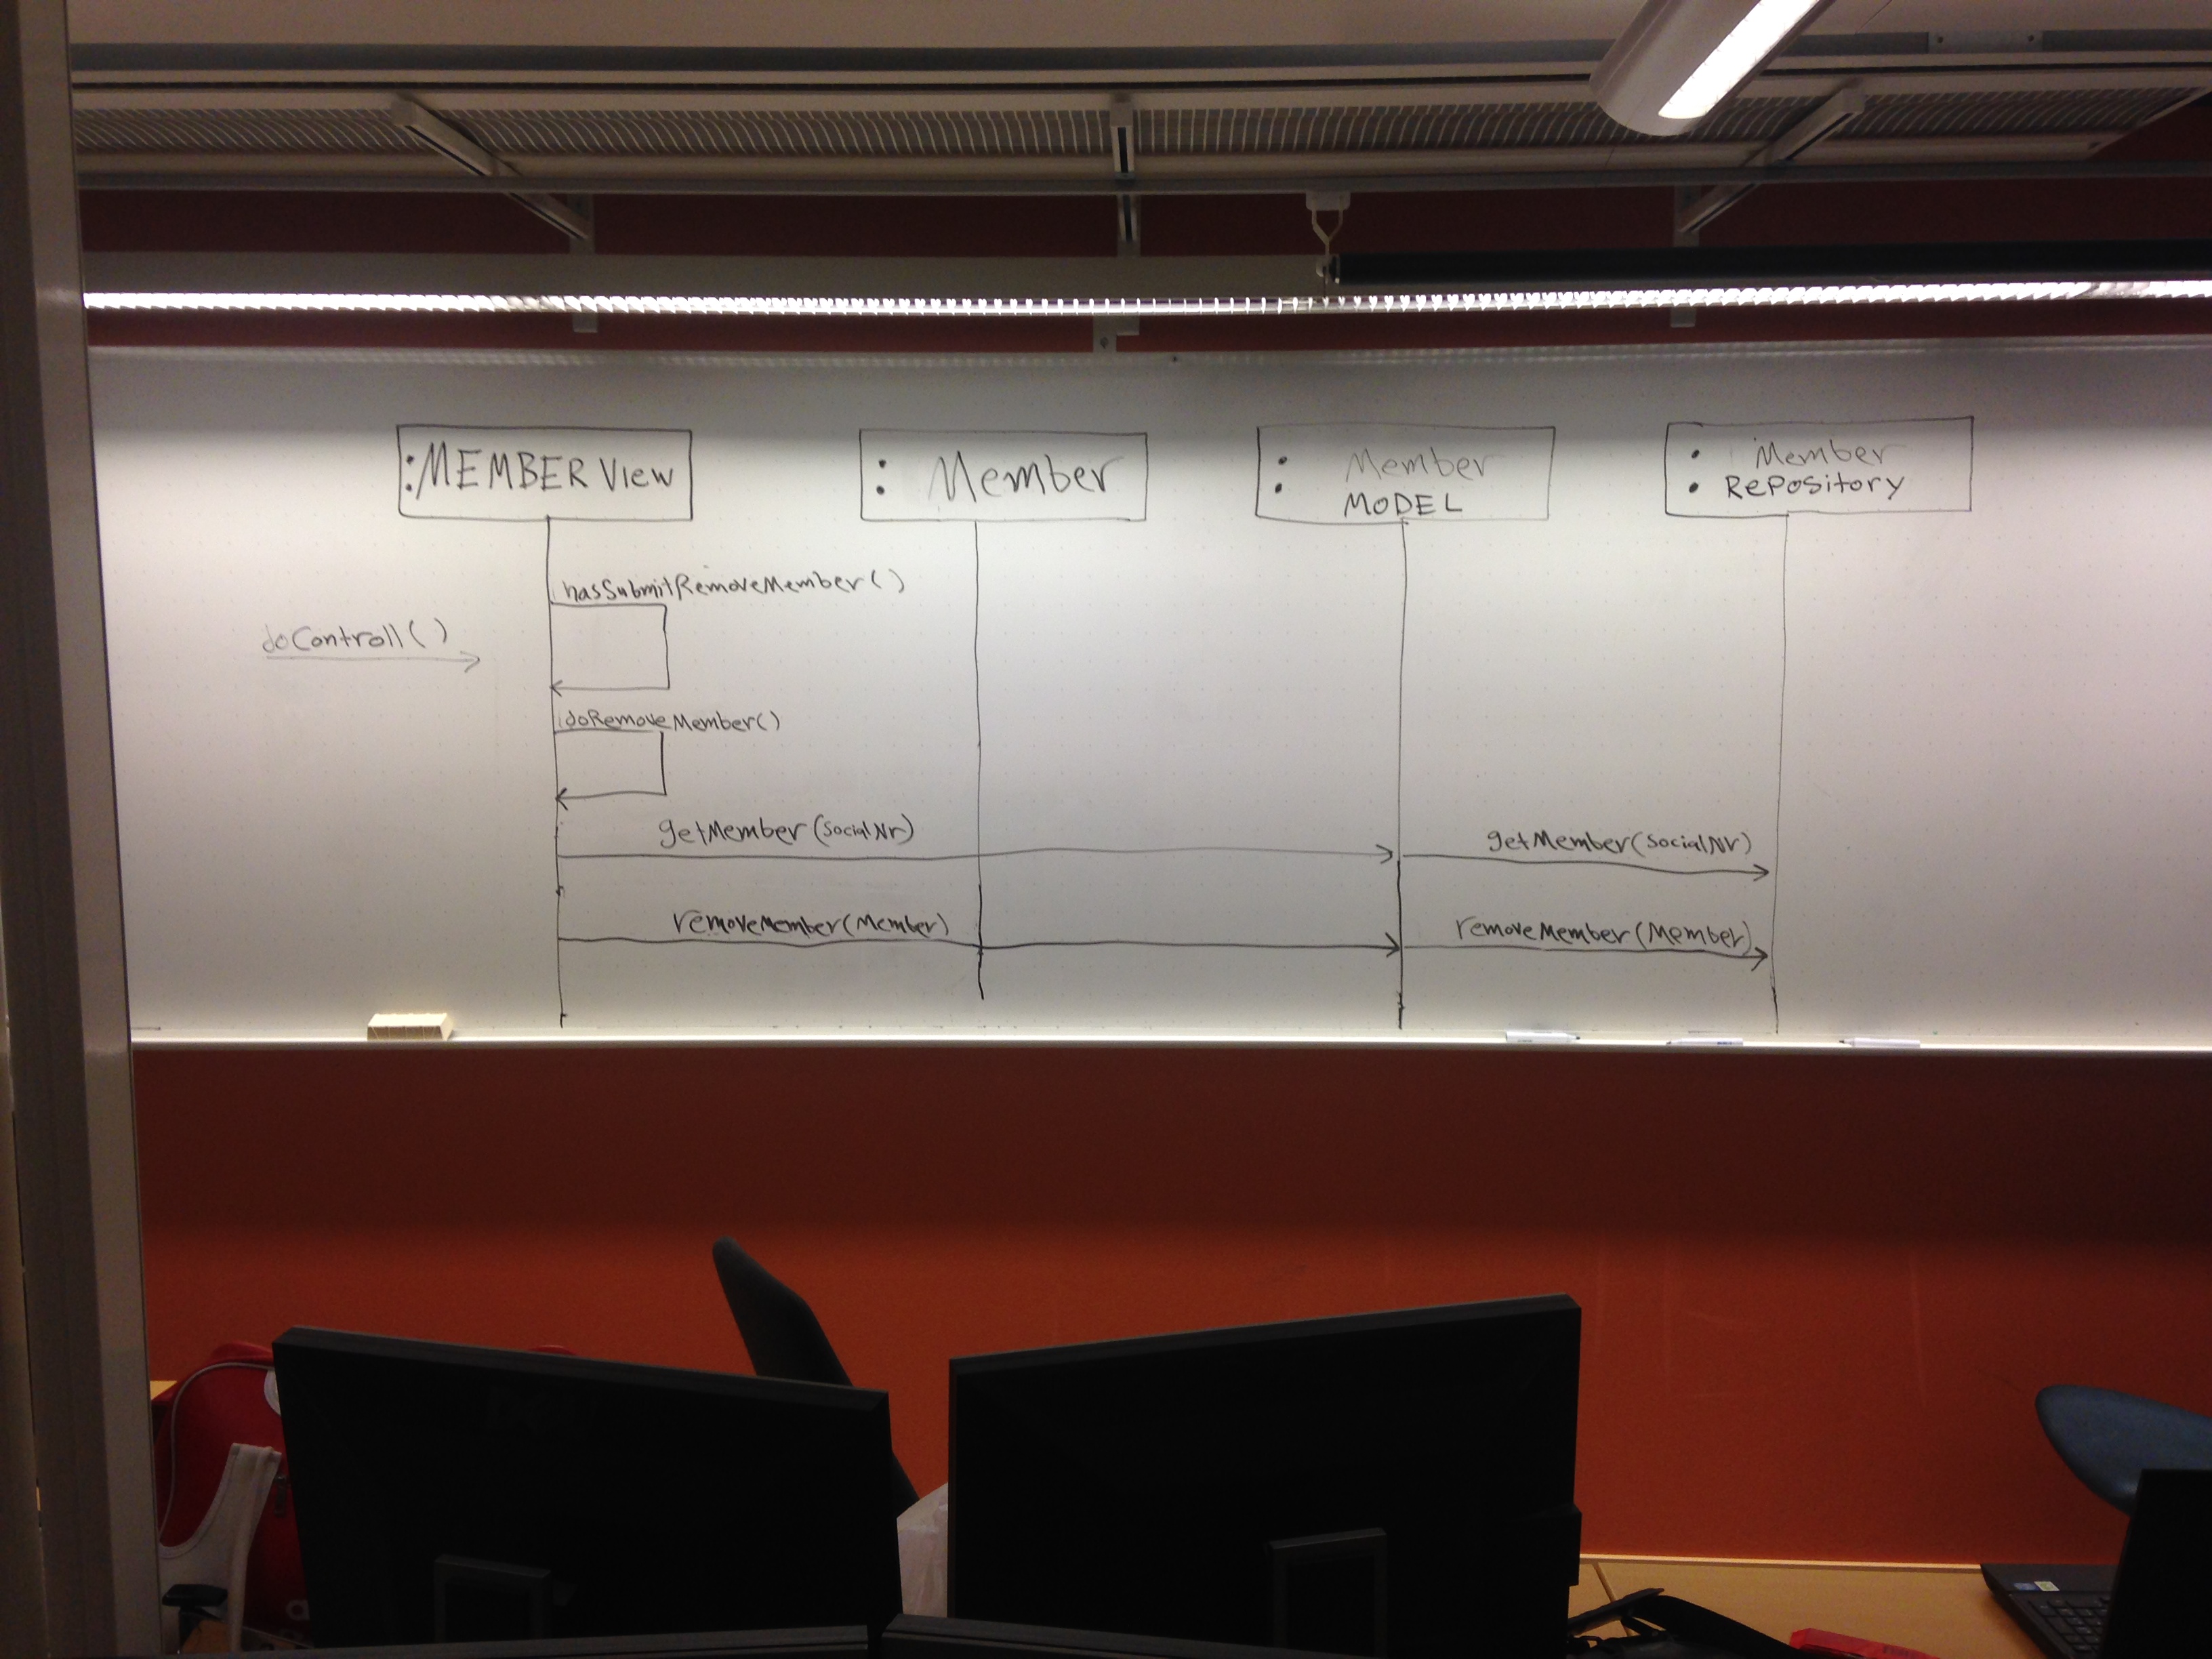 :MEMBER View
: Member
: Member
MODEL
: Member
Repository
hasSubmitRemoveMember()
doControll()
doRemoveMember()
getMember(SocialNr)
getMember(SocialNr)
removeMember(Member)
removeMember(Member)